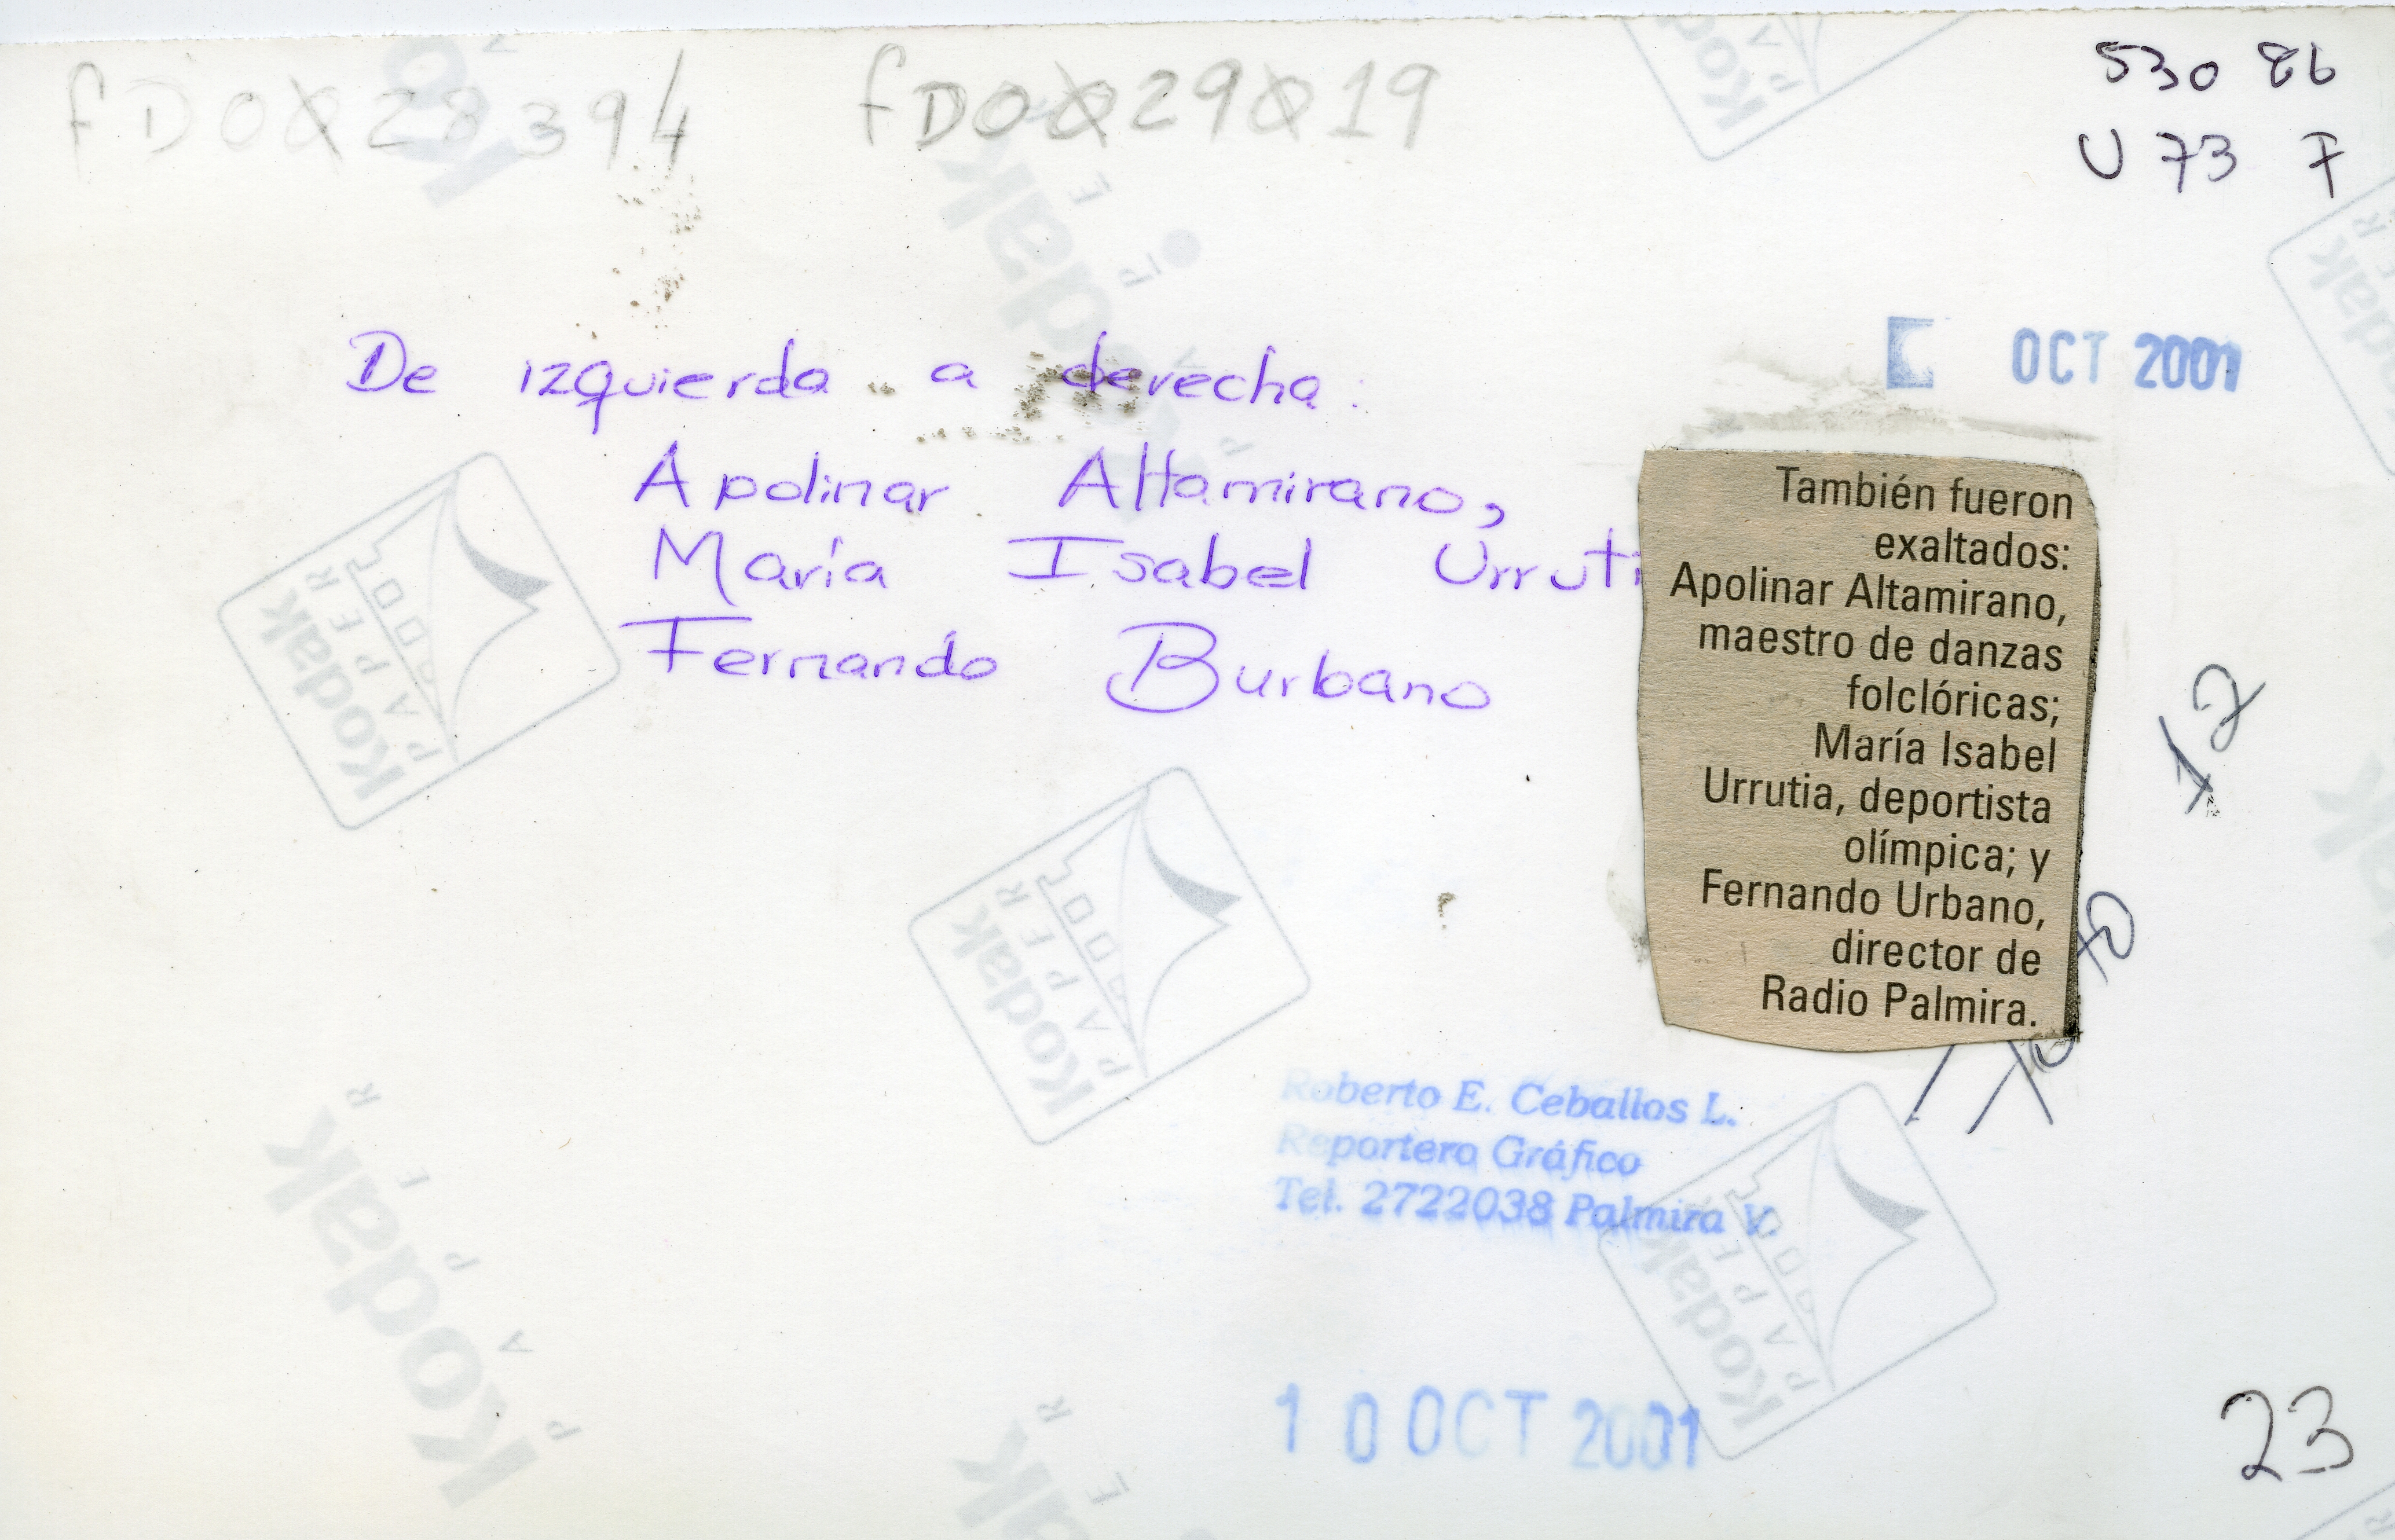 fD0028394 fD0029019
530 86
U 73 F
OCT 2001
De izquierda a derecha:
Apolinar Altamirano,
María Isabel Urruti
Fernando Burbano
También fueron
exaltados:
Apolinar Altamirano,
maestro de danzas
folclóricas;
María Isabel
Urrutia, deportista
olímpica; y
Fernando Urbano,
director de
Radio Palmira.
17
Roberto E. Ceballos L.
Reportero Gráfico
Tel. 2722038 Palmira V.
10 OCT 2001
23
Kodak
PAPER
Kodak
PAPER
Kodak
PAPER
Kodak
PAPER